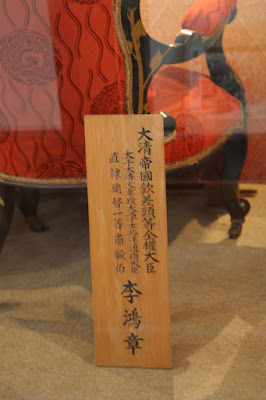 大清帝國欽差頭等全權大臣
太子太傅文華殿大學士北洋通商大臣
直隸總督一等肅毅伯
李鴻章